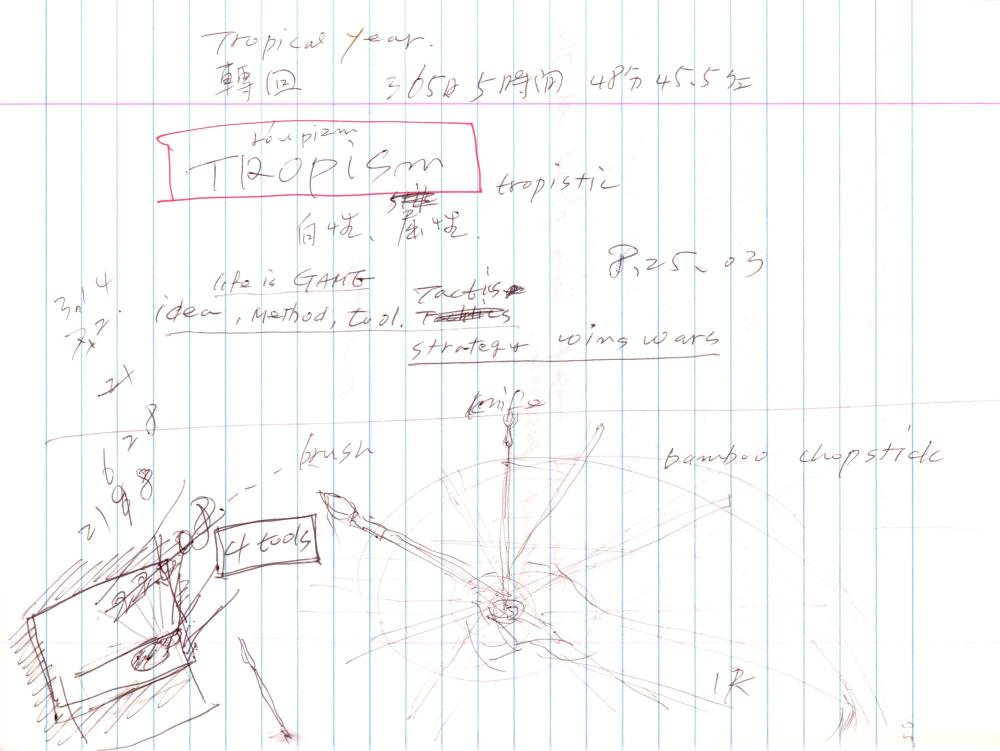 Tropical year.
轉回 365日5時間 48分45.5秒
TROpiSm
tropistic
向性、属性.
8.25.03
life is GAME
idea, Method, tool. Tactis
strategy wins wars
knife
brush
bamboo chopstick
4 tools